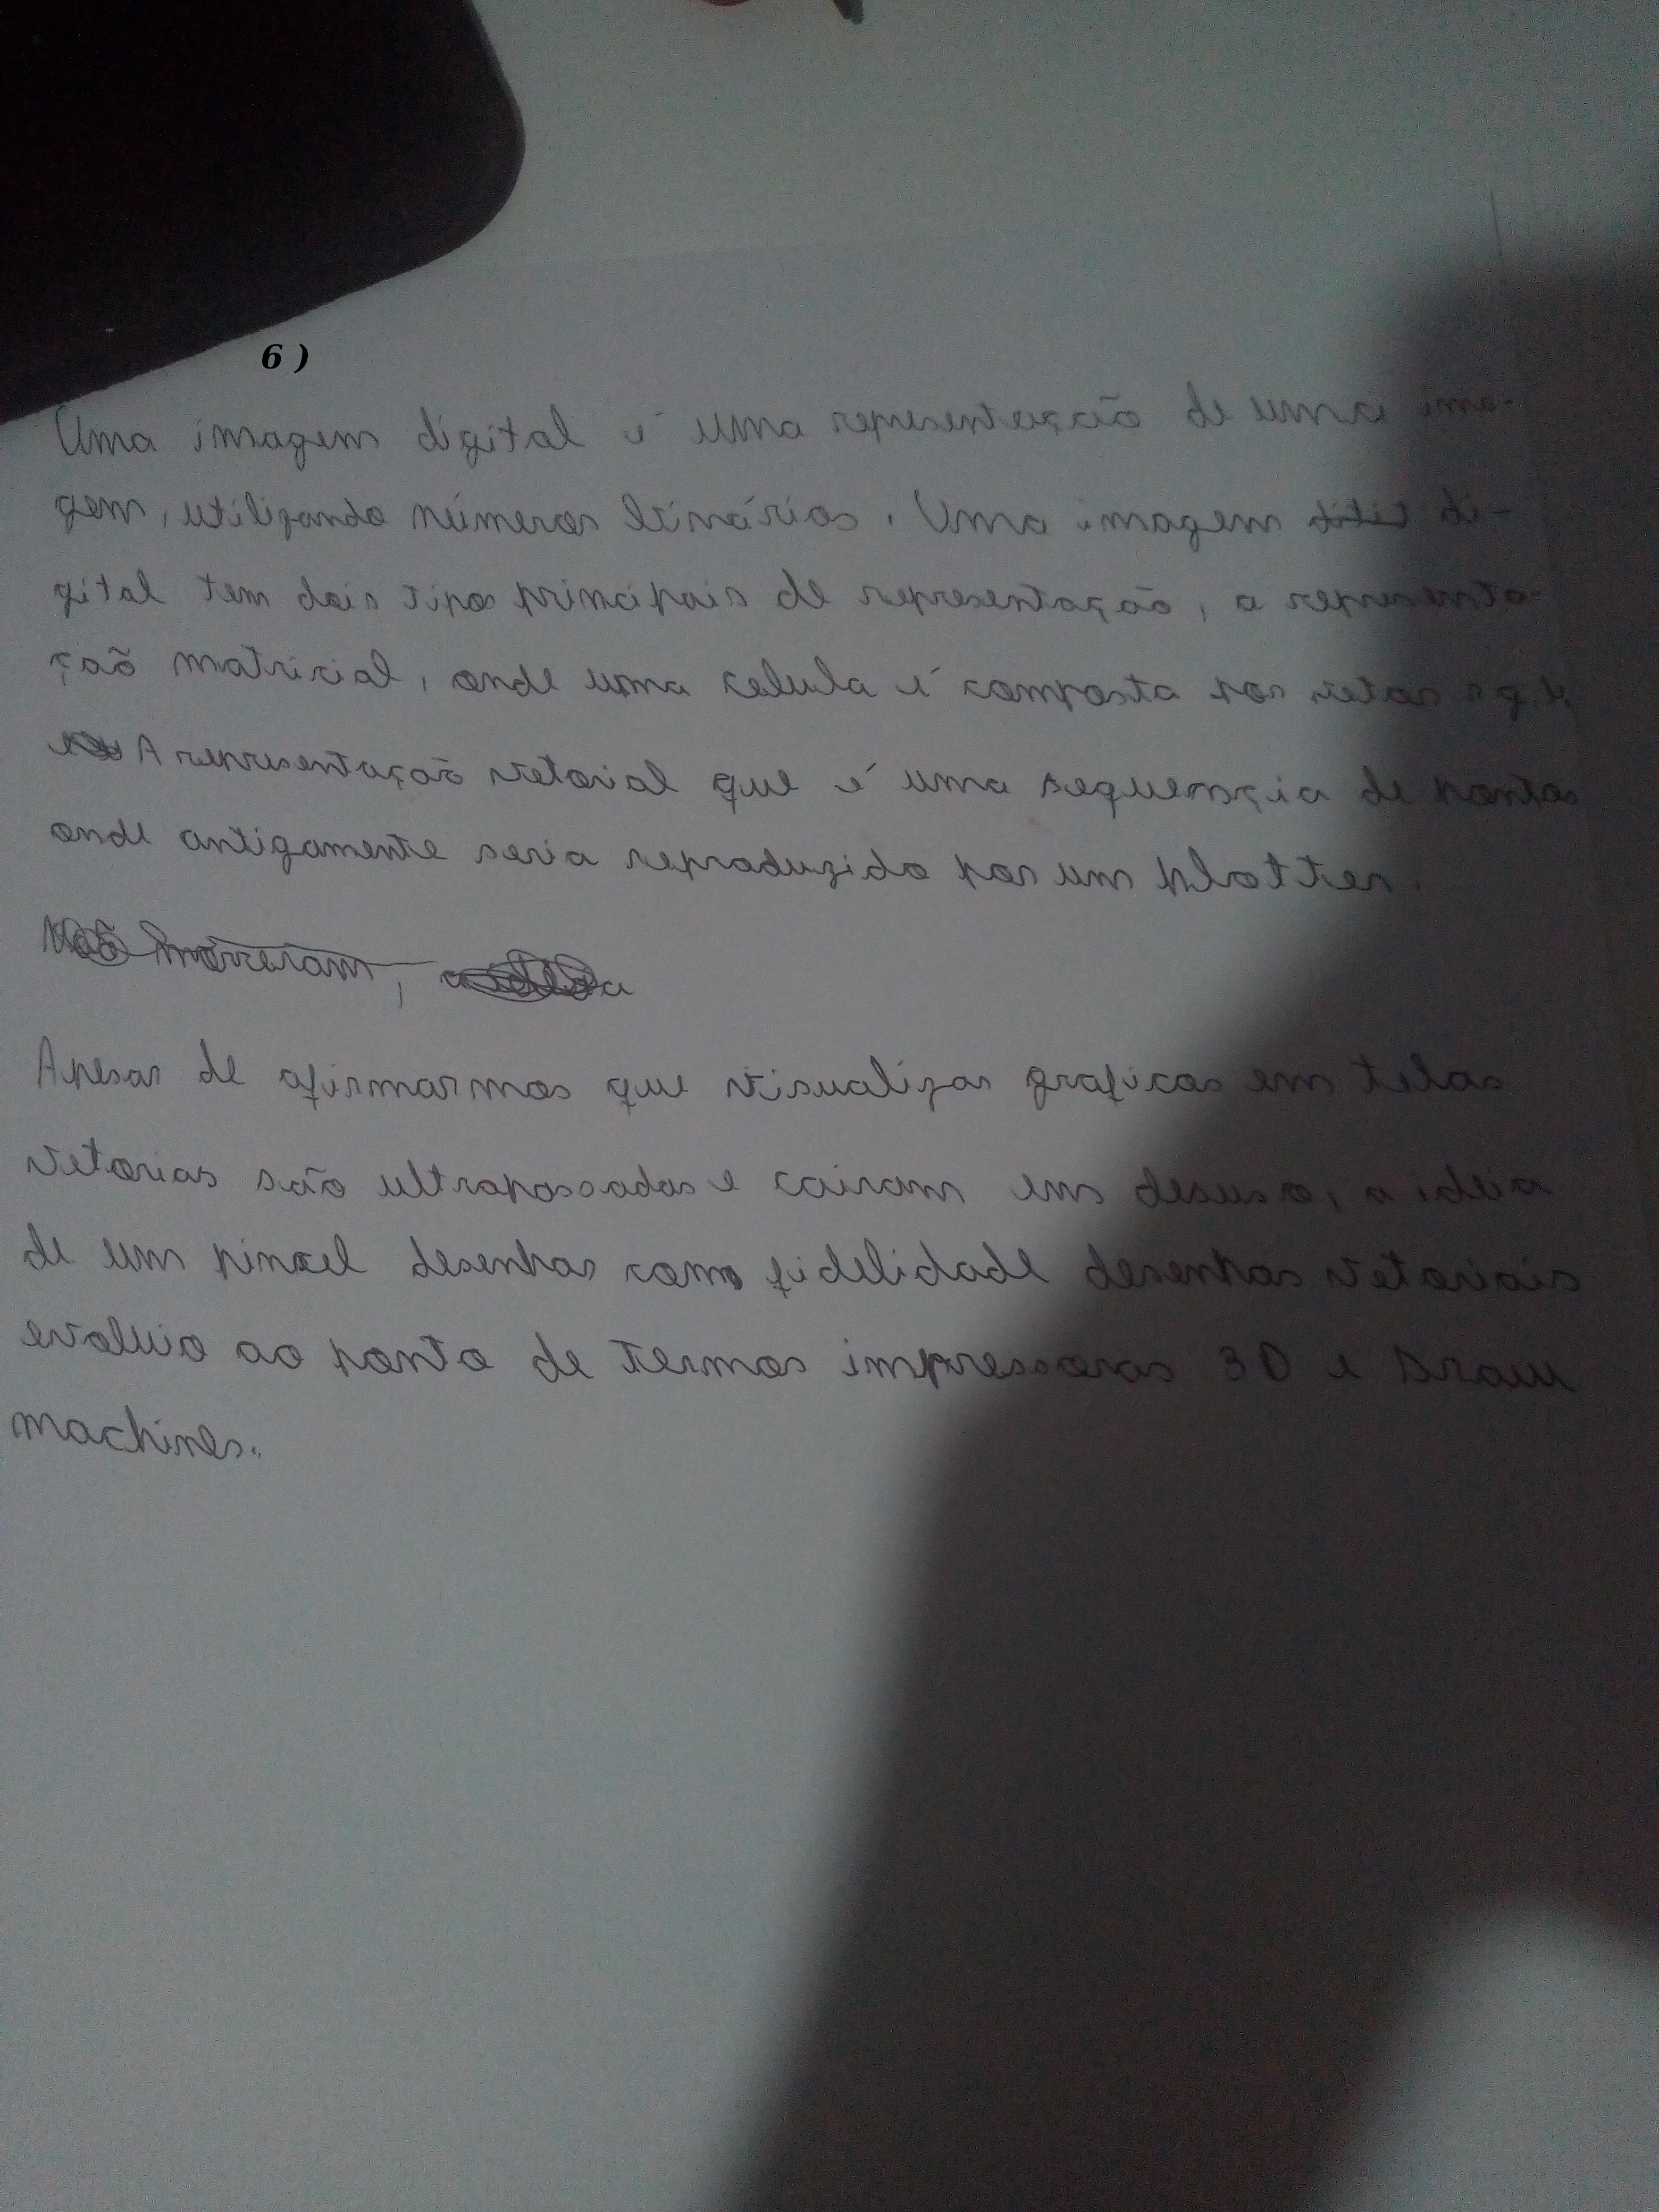 6 )
Uma imagem digital é uma representação de uma ima-
gem, utilizando números binários. Uma imagem di-
gital tem dois tipos principais de representação, a representa-
ção matricial, onde uma celula é composta por
A representação vetorial que é uma sequenzia de pontos
onde antigamente seria reproduzido por um plotter.
Não morreram, a
Apesar de afirmarmos que visualizar graficos em telas
vetorias são ultrapassados e cairam em desuso, a ideia
de um pincel desenhar com fidelidade desenhos vetoriais
evoluio ao ponto de termos impressoras 3D e Draw
machines.